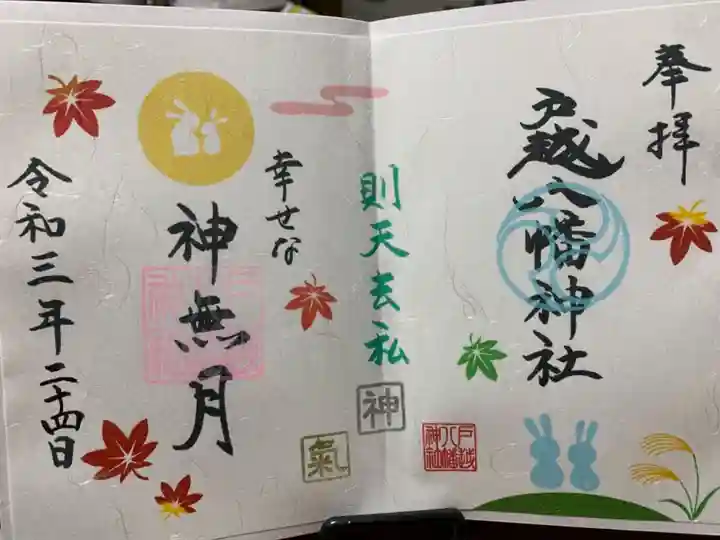 奉拝
戸越八幡神社
則天去私
幸せな
神無月
令和三年二十四日
神
氣
戸越
八幡
神社